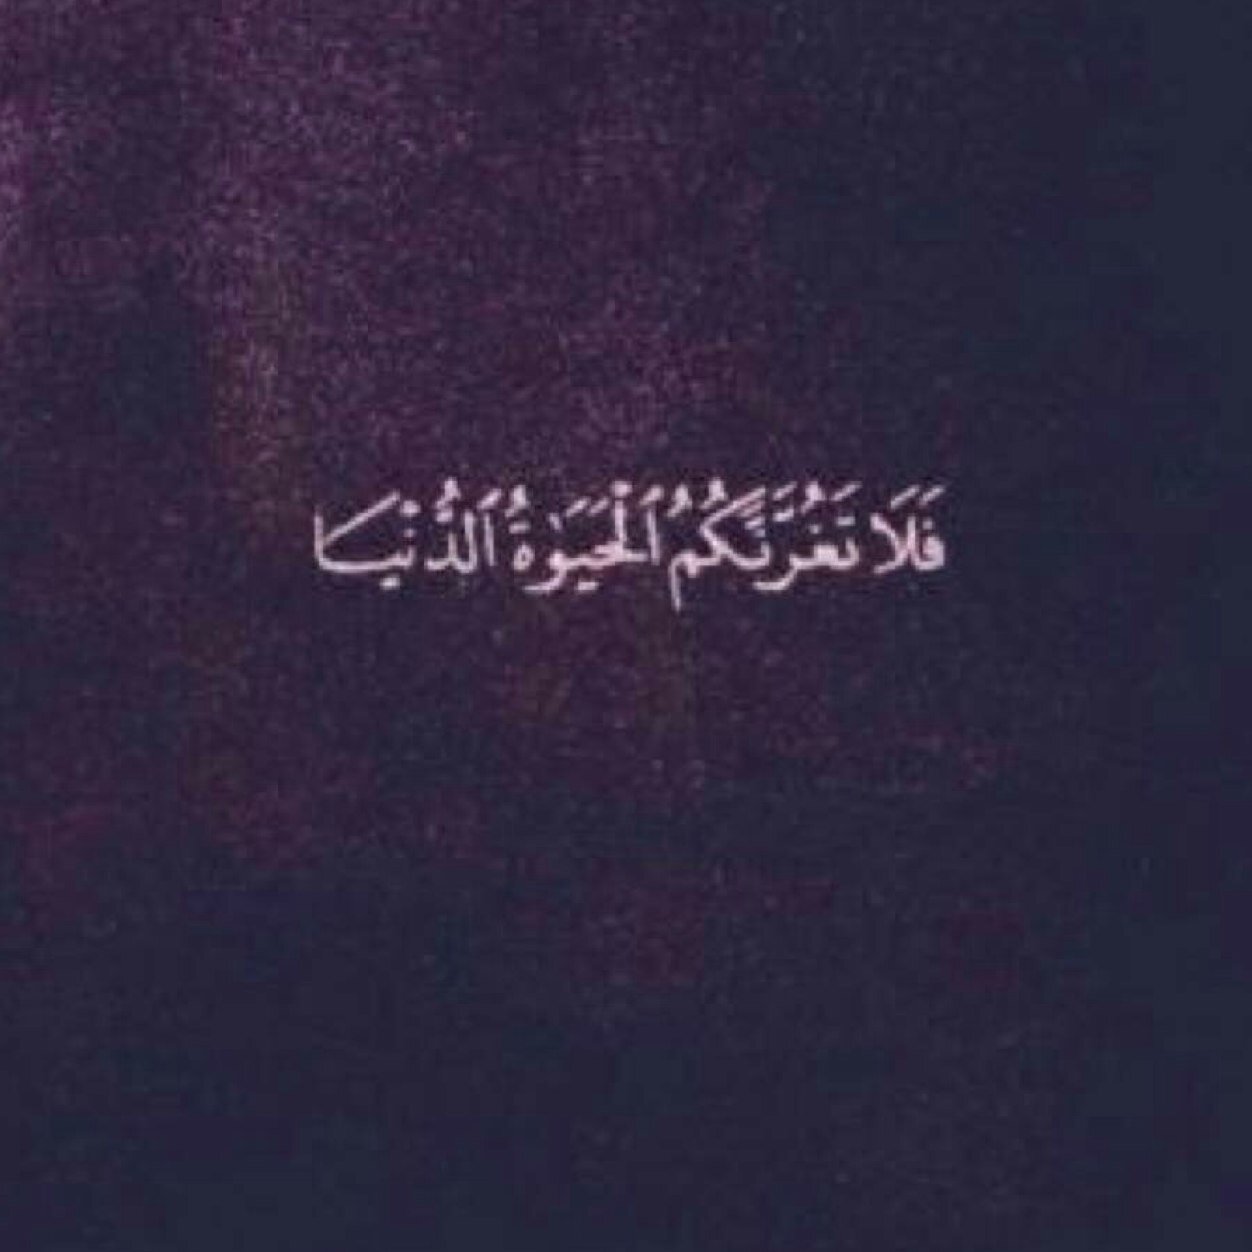 فَلَا تَغُرَّنَّكُمُ ٱلْحَيَوٰةُ ٱلدُّنْيَا